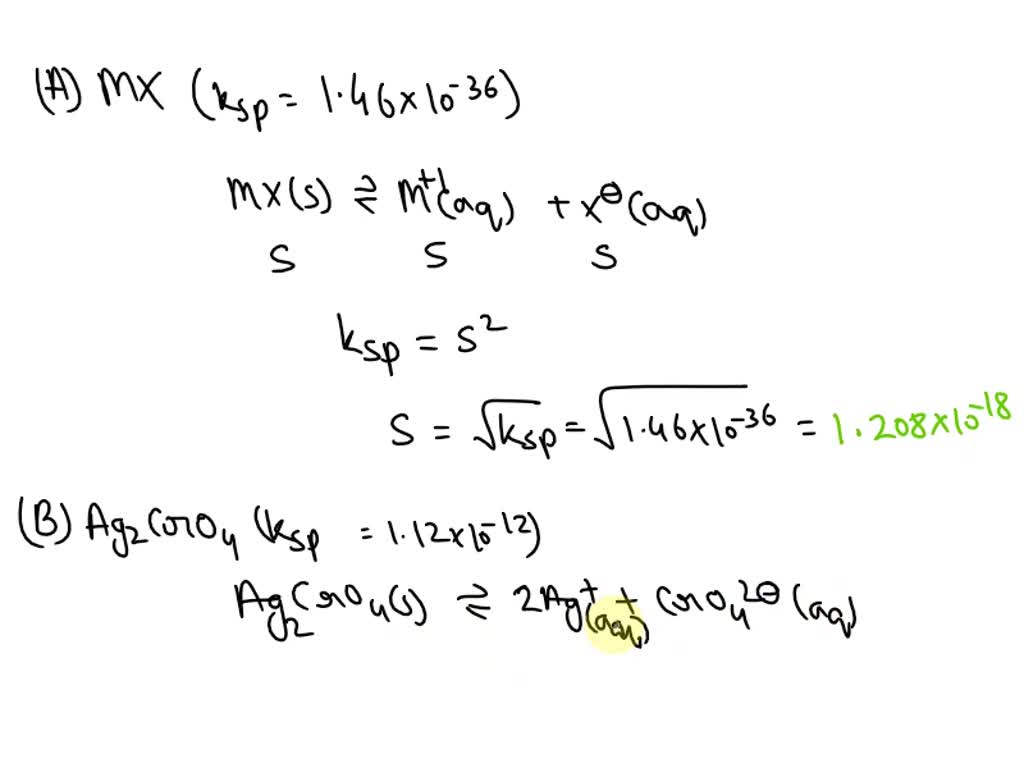 (A) MX (Ksp = 1.46×10⁻³⁶)
MX(s) ⇌ M⁺¹(aq) + X⊖(aq)
S S S
Ksp = S²
S = √Ksp = √1.46×10⁻³⁶ = 1.208×10⁻¹⁸
(B) Ag₂CrO₄ (Ksp = 1.12×10⁻¹²)
Ag₂CrO₄(s) ⇌ 2Ag⁺(aq) + CrO₄²⊖(aq)